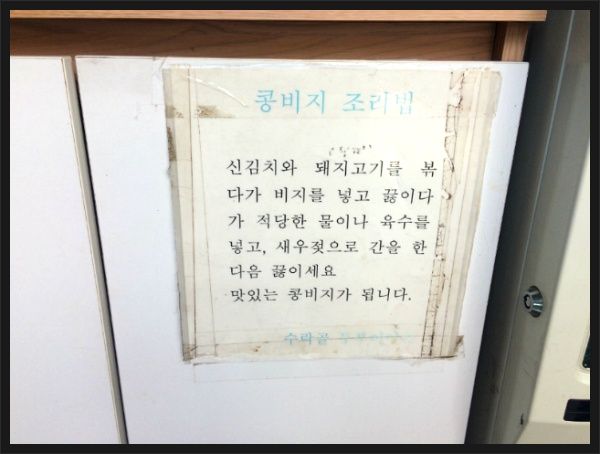 콩비지 조리법
신김치와 돼지고기를 볶
다가 비지를 넣고 끓이다
가 적당한 물이나 육수를
넣고, 새우젓으로 간을 한
다음 끓이세요
맛있는 콩비지가 됩니다.
수라골